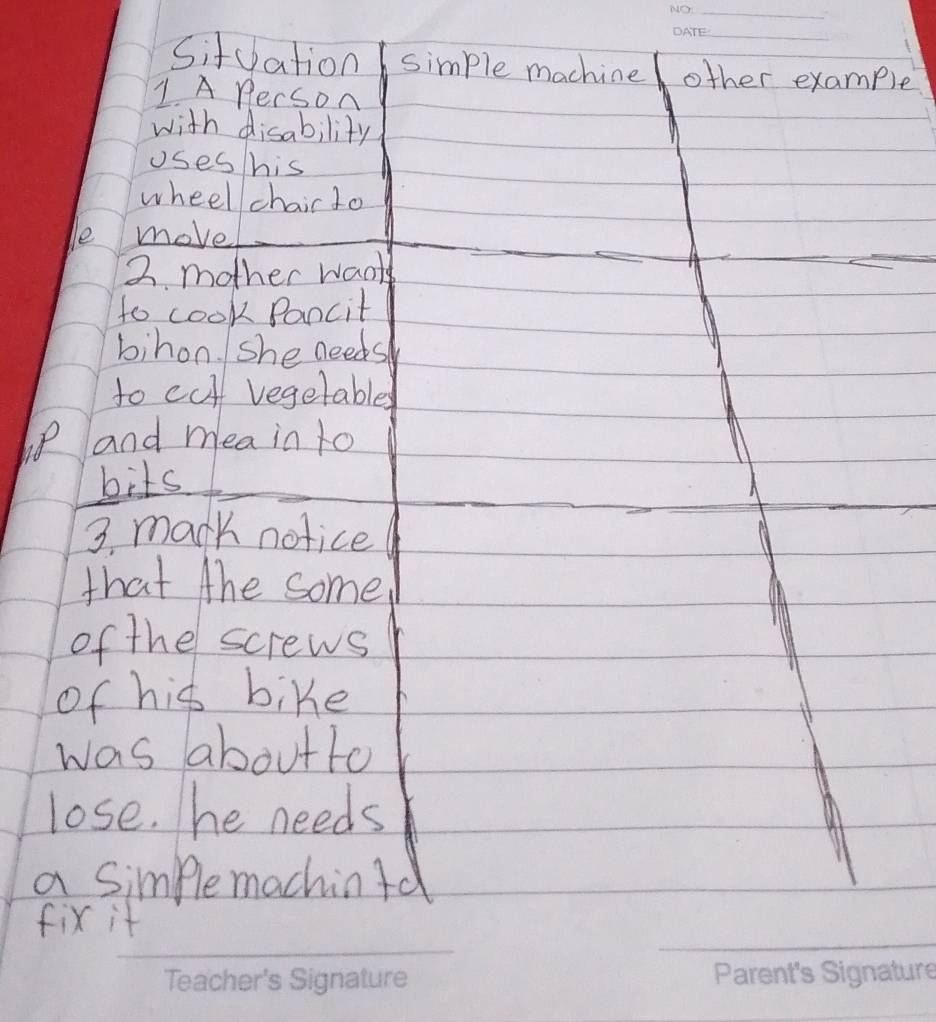 NO.
DATE
Situation simple machine other example
1. A Person
with disability
uses his
wheel chair to
move
2. mother wants
to cook Pancit
bihon. She needs
to cut vegetables
and mea in to
bits
3. mark notice
that the some
of the screws
of his bike
was about to
lose. he needs
a simple machin to
fix it
Teacher's Signature Parent's Signature